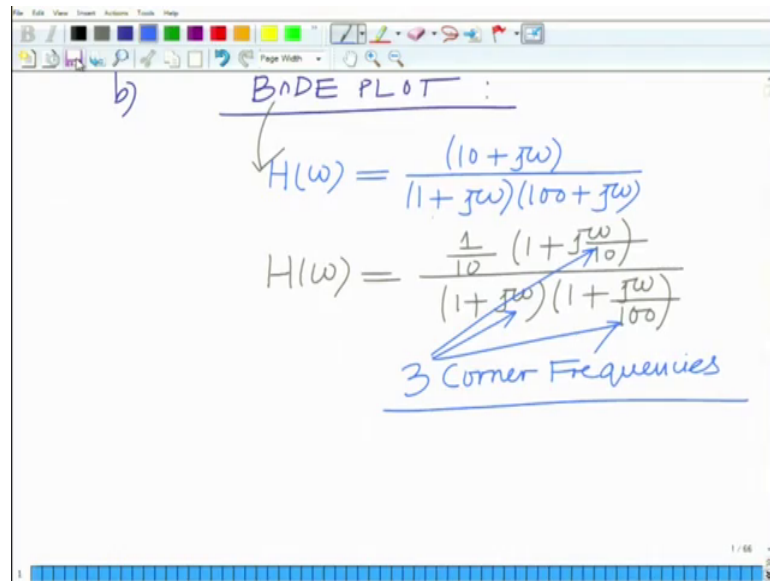 File Edit View Insert Actions Tools Help
B I
Page Width
b) BODE PLOT :
H(ω) = (10 + jω) / (1 + jω)(100 + jω)
H(ω) = 1/10 (1 + jω/10) / (1 + jω)(1 + jω/100)
3 Corner Frequencies
1 / 66
1